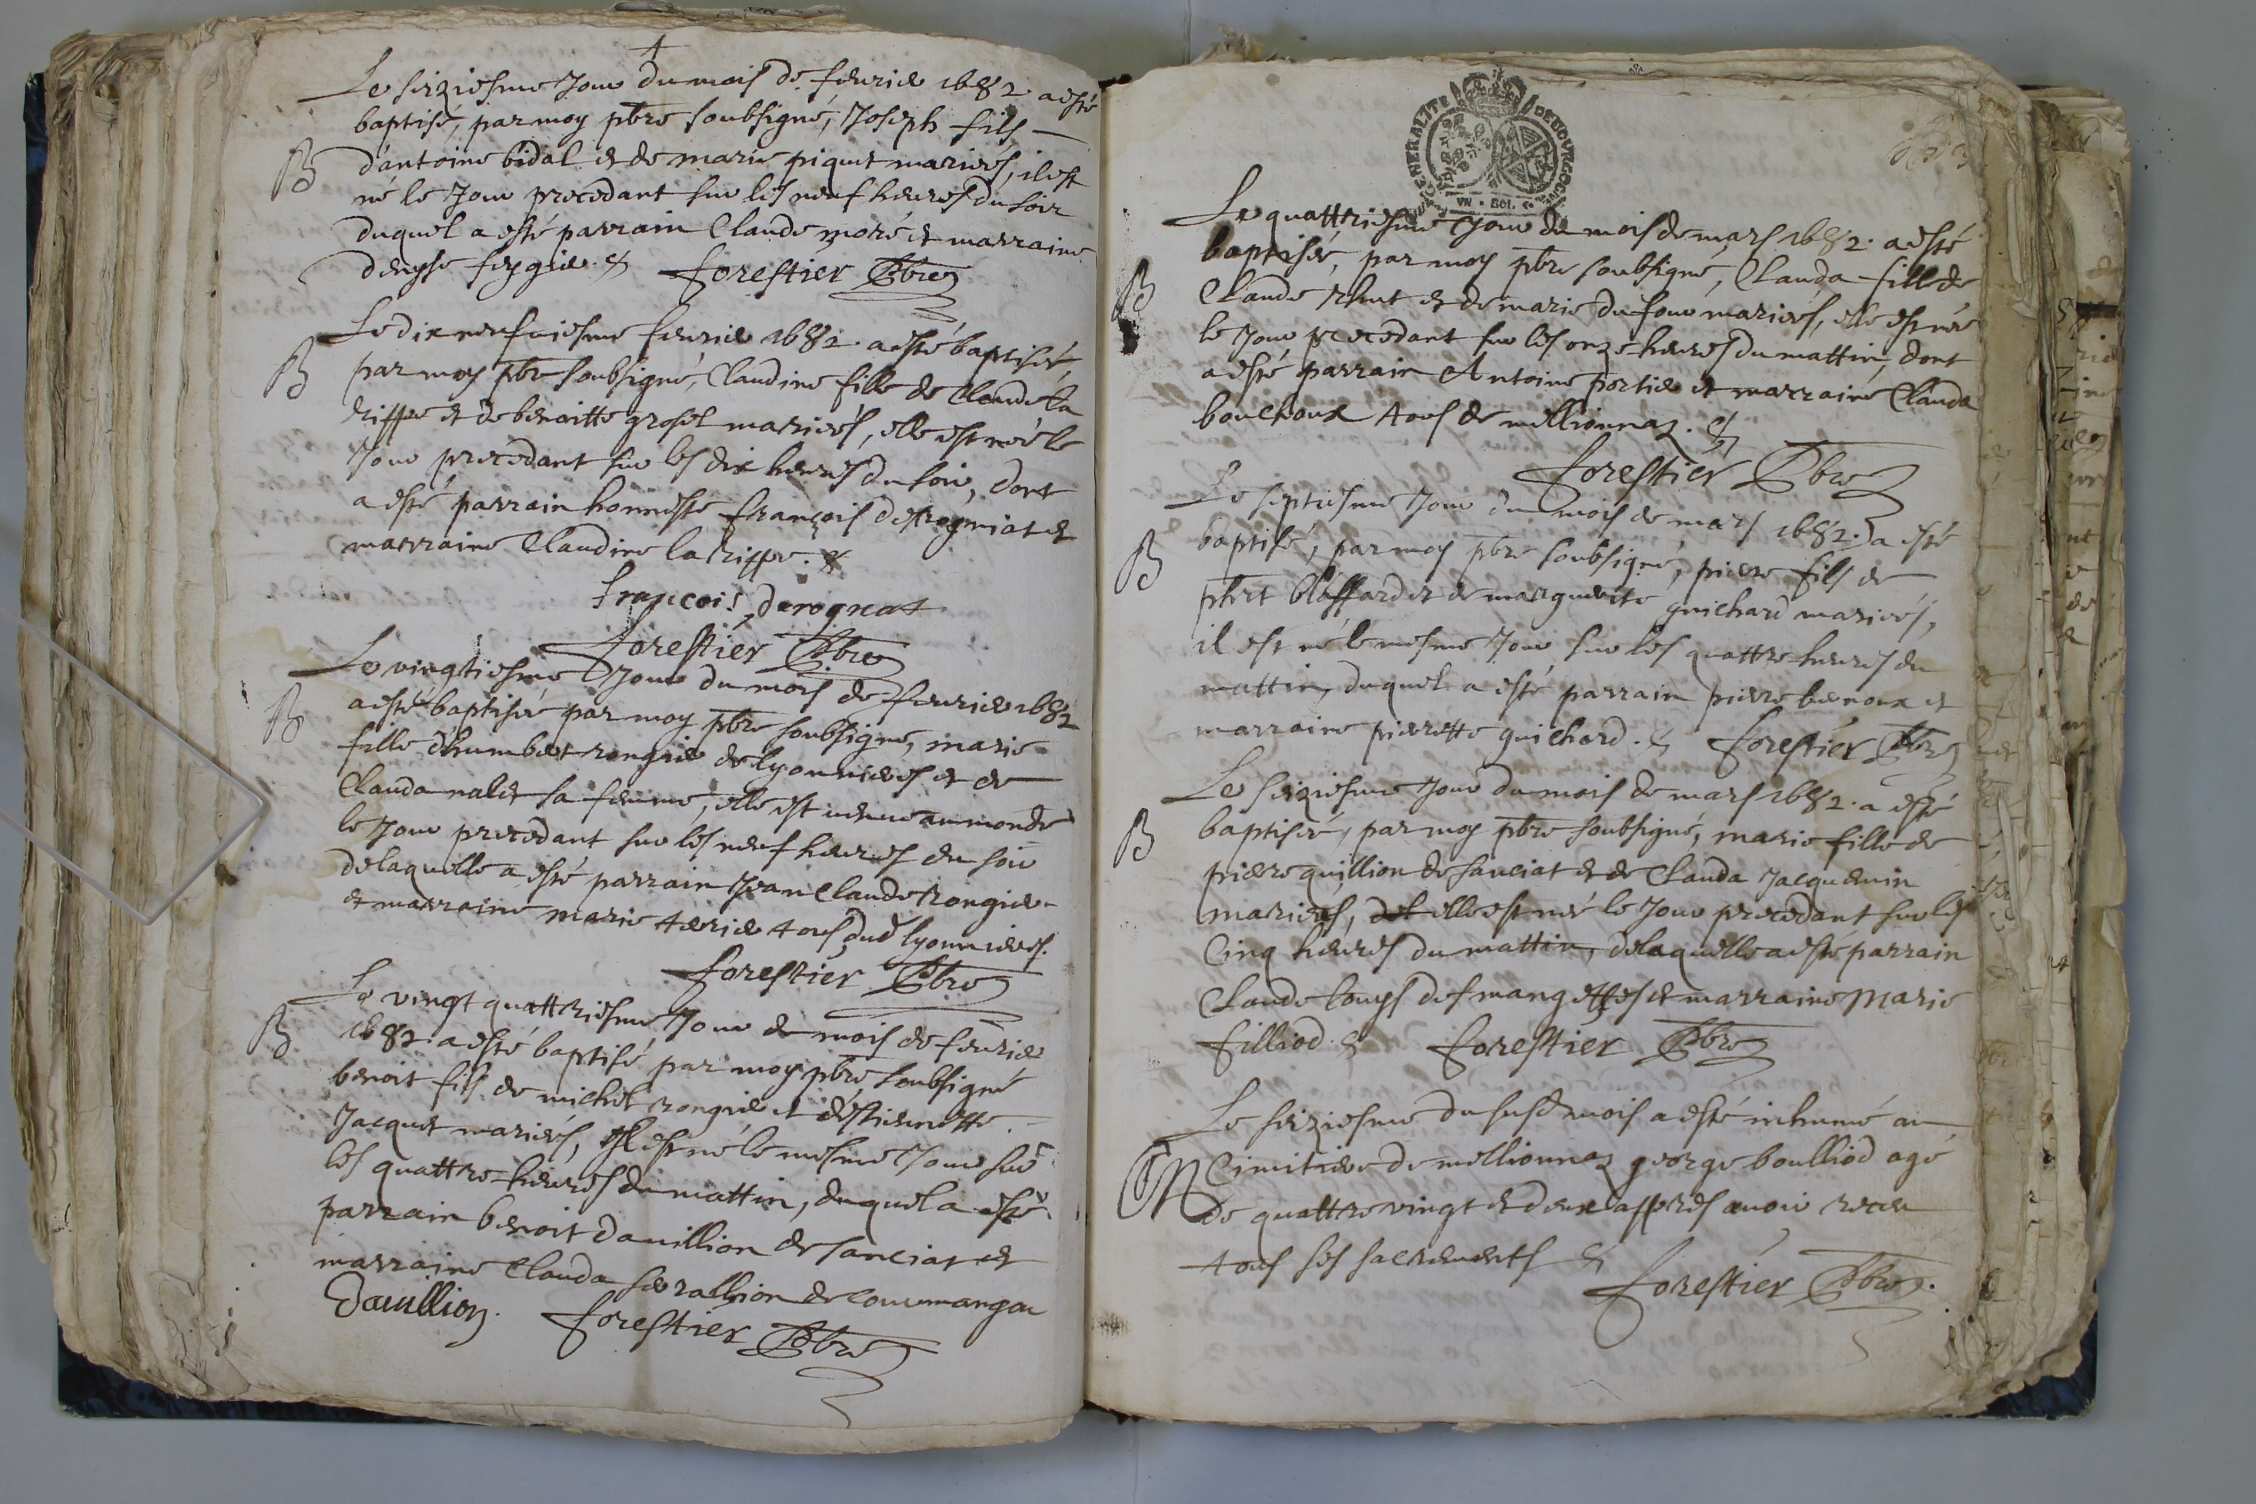 Le seiziesme Jour du mois de feurier 1682 a esté
baptisé, par moy pbre soubsigné, Joseph fils
B
d'antoine bidal et de marie piquet mariés, il est
né le Jour precedant sur les neuf heures du soir
duquel a esté parrain Claude moré et marraine
denyse
forestier Pbre
Le dixneufuiesme feurier 1682. a esté baptisée,
B
par moy pbre soubsigné, Claudine fille de Claude la
rippe et de benoitte grosel mariés, elle est née le
Jour precedant sur les dix heures du soir, dont
a esté parrain honneste françois derogniat et
marraine Claudine la rippe. &
françois derogneat
forestier Pbre
Le vingtiesme Jour du mois de feurier 1682
B
a esté baptisée par moy pbre soubsigné, marie
fille d'humbert rongier de lyonnieres et de
Clauda nalet sa femme, elle est uenue au monde
le Jour precedant sur les neuf heures du soir
delaquelle a esté parrain Jean Claude Rongier
et marraine marie terrier tous dud lyonnieres.
forestier Pbre
Le vingt quattriesme Jour du mois de feurier
B
1682. a esté baptisé par moy pbre soubsigné
benoit fils de michel rongier et d'estiennette
Jacquet mariés, il est né le mesme Jour sur
les quattre heures du mattin, duquel a esté
parrain benoit dauillion de sanciat et
marraine Clauda serrallion de courmangou
Dauillion. forestier Pbre
GENERALITE DE BOURGOGNE
VN. SOL.
Le quattriesme Jour du mois de mars 1682. a esté
B
baptisée, par moy pbre soubsigné, Clauda fille de
Claude et de marie du four mariés, elle est née
le Jour precedant sur les onze heures du mattin, dont
a esté parrain Antoine portier et marraine Clauda
bouchoux tous de millionnaz. &
forestier Pbre
Le septiesme Jour du mois de mars 1682. a esté
B
baptisé, par moy pbre soubsigné, pierre fils de
phbrt blaffard et de marguerite guichard mariés,
il est né le mesme Jour sur les quattre heures du
mattin, duquel a esté parrain pierre bernoux et
marraine pierrette guichard. & forestier Pbre
Le seiziesme Jour du mois de mars 1682. a esté
B
baptisée, par moy pbre soubsigné, marie fille de
pierre quillion de sanciat et de Clauda Jacquemin
mariés, del elle est née le Jour precedant sur les
Cinq heures du mattin, delaquelle a esté parrain
Claude Couys des mangettes et marraine Marie
filliod. & forestier Pbre
Le seiziesme du susd mois a esté inhumé au
M
Cimitiere de millionnaz george boulliod agé
de quattre vingt et deux appres auoir receu
tous ses sacrements &
forestier Pbre.